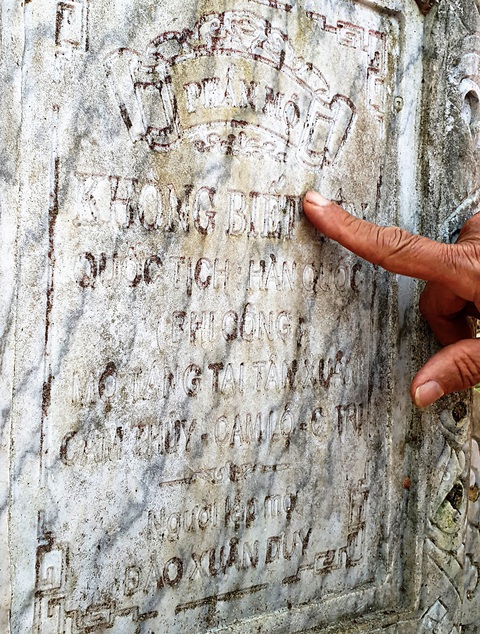 PHẦN MỘ
KHÔNG BIẾT TÊN
QUỐC TỊCH: HÀN QUỐC
(PHI CÔNG)
MỘ TÁNG TẠI TÂN XUÂN
CAM THỦY - CAM LỘ - Q TRỊ
Người lập mộ
ĐÀO XUÂN DUY